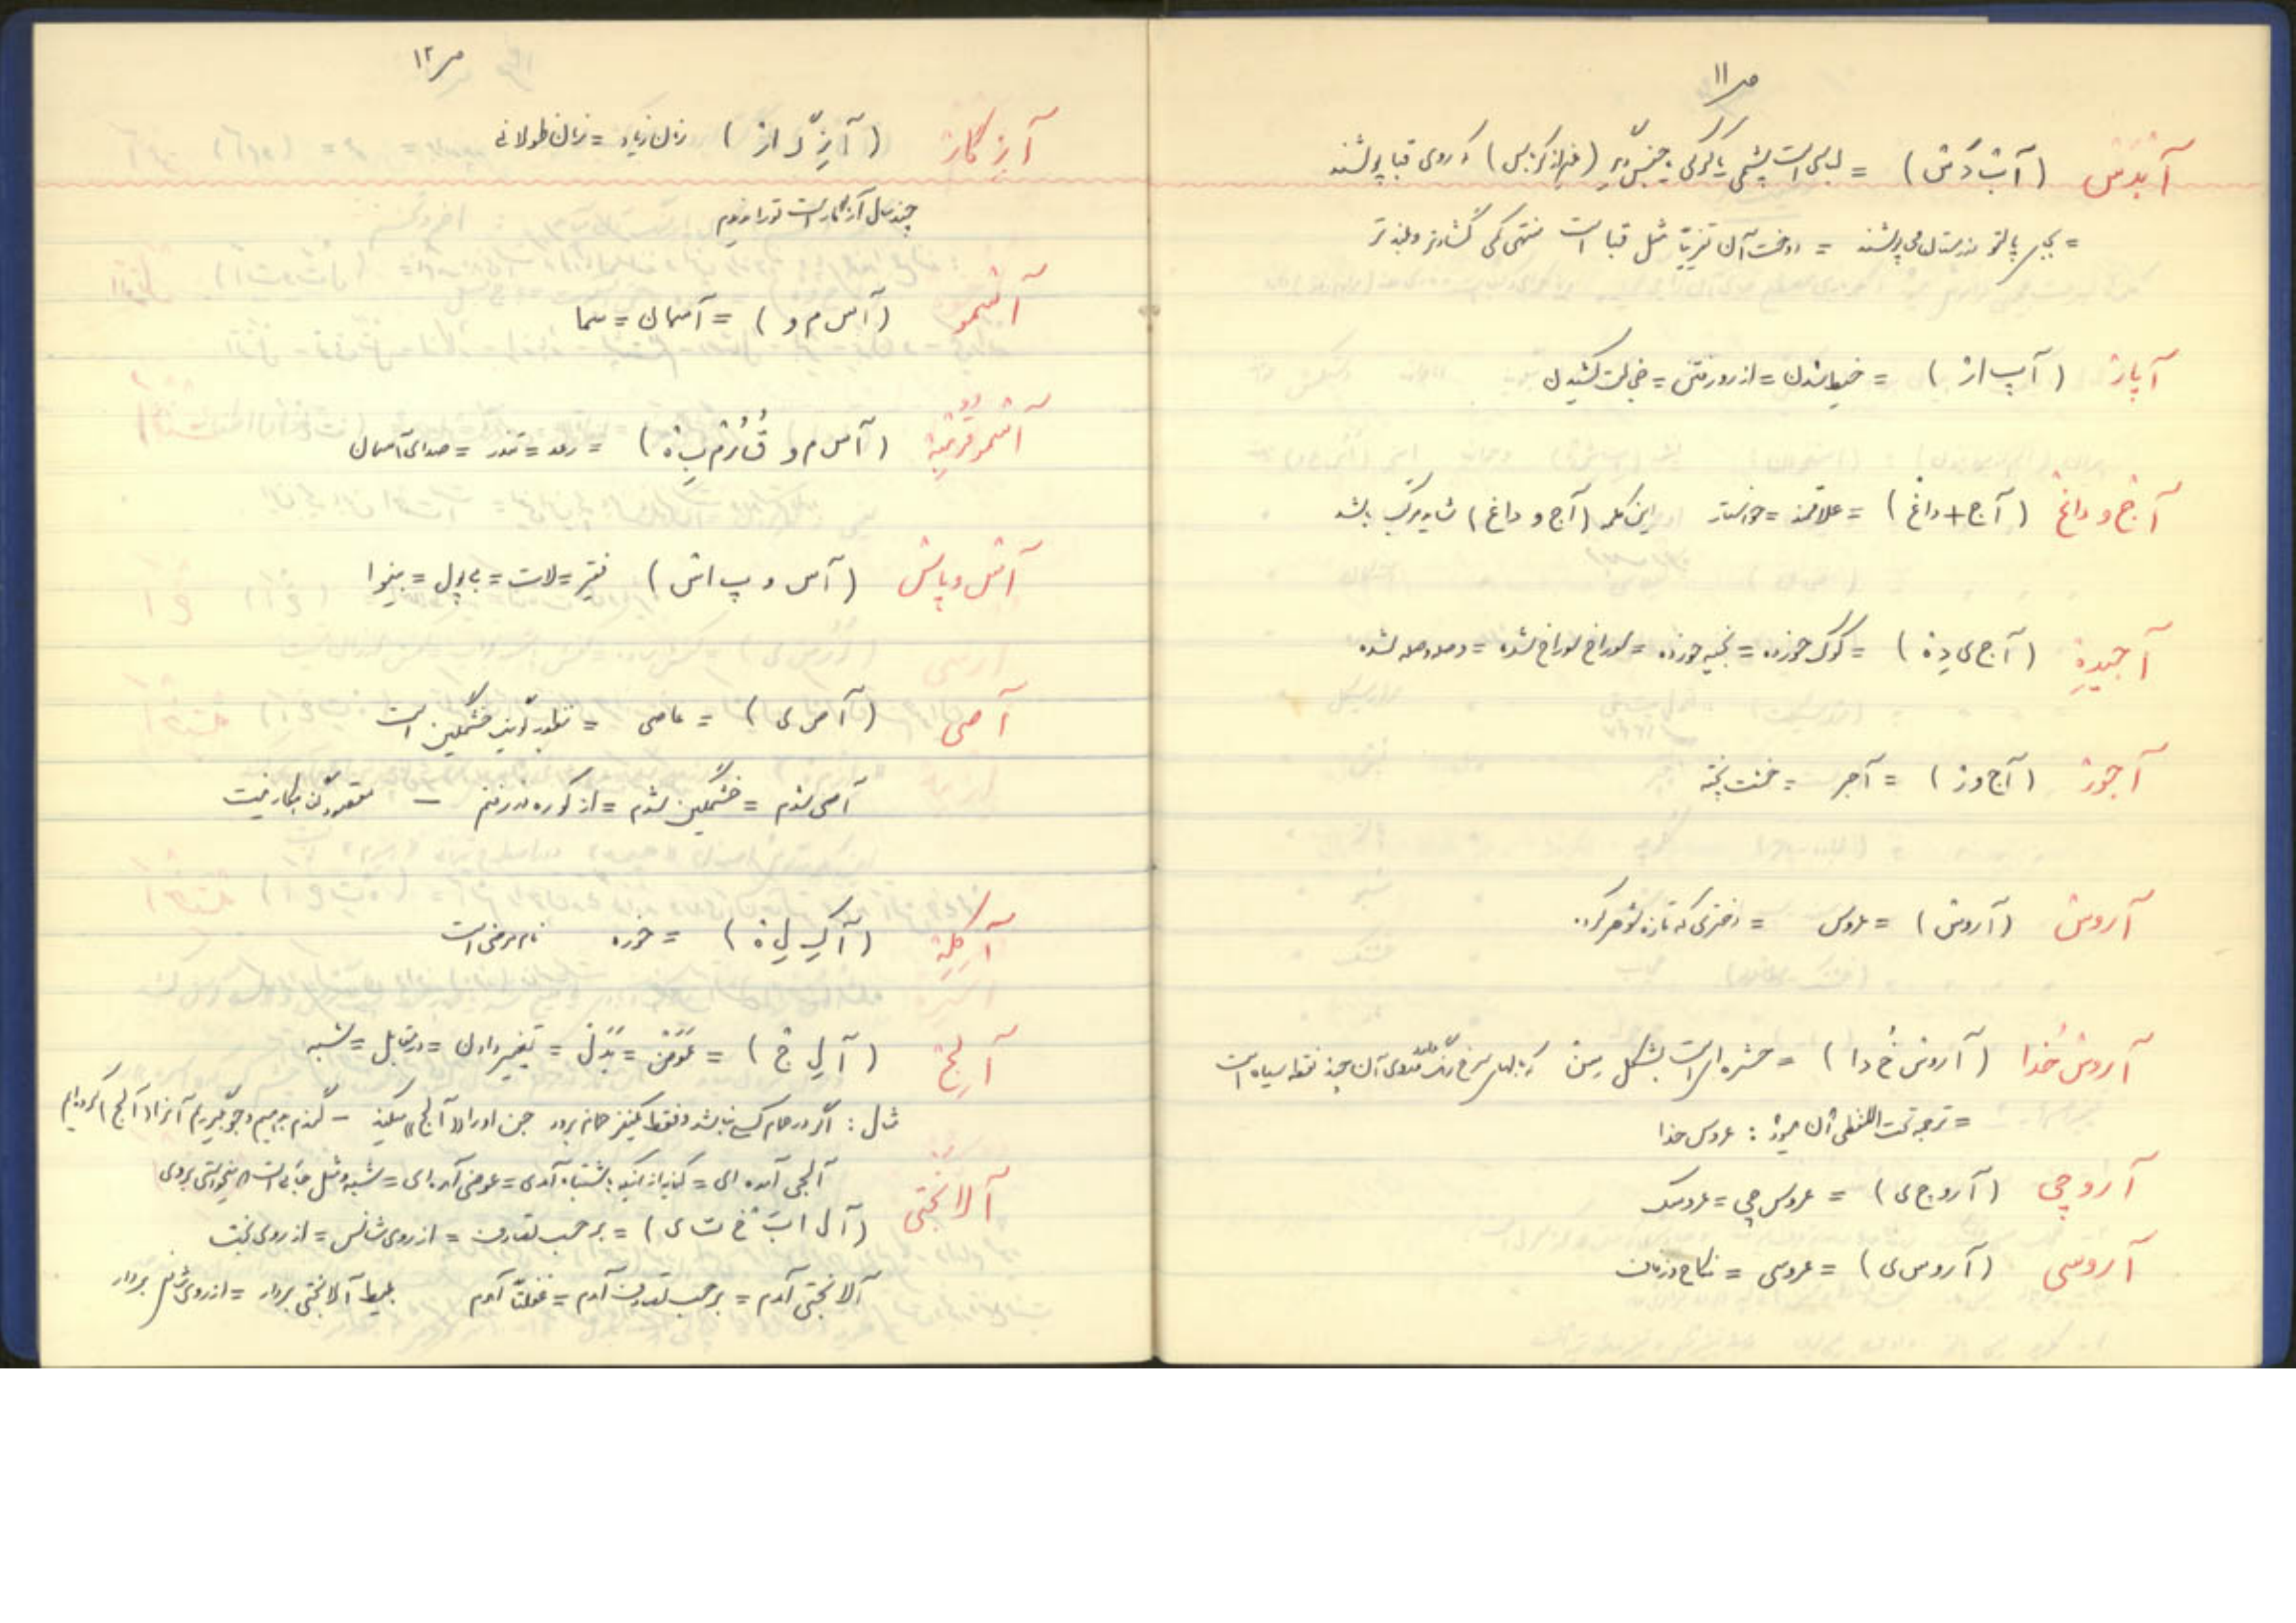 ص ۱۱
آبْدَسْ (آبْ دَسْ) = لباسی است پشمی یا کرکی یا جنس دیگر (غیر از کرباس) که روی قبا پوشند
= بجای پالتو در زمستان می‌پوشند = دوخت آن تقریباً مثل قبا است منتهی کمی گشادتر و بلندتر
آپاز (آپ از) = خیط شدن = از رو رفتن = خجالت کشیدن
آج و داغ (آج + داغ) = علاقمند = خواستار این کلمه (آج و داغ) شاید مرکب باشد
آجیدِهْ (آج ی دِهْ) = کوک خورده = بخیه خورده = سوراخ سوراخ شده = وصله وصله شده
آجور (آج ور) = آجر = خشت پخته
آروسْ (آروسْ) = عروس = دختری که تازه شوهر کرده
آروسْ خُدا (آروسْ خُ دا) = حشره‌ایست بشکل که بالهایش سرخ رنگ روی آن چند نقطه سیاه است
= ترجمه تحت اللفظی آن میشود : عروس خدا
آروچی (آروچ ی) = عروس چی = عروسک
آروسی (آروس ی) = عروسی = نکاح
ص ۱۲
آزگار (آزِ گ ار) زمان زیاد = زمان طولانی
چند سال آزگار است تو را ندیدم
آسْمو (آس م و) = آسمان = سما
آسْموقُرُمْبِهْ (آس م و قُ رُم بِ هْ) = رعد = تندر = صدای آسمان
آس و پاس (آس و پ اس) فقیر = لات = بی پول = بینوا
آصی (آص ی) = عاصی = خشمگین است
آصی شدم = خشمگین شدم = از کوره در رفتم –
آکِلِهْ (آ کِ لِ هْ) = خوره نام مرضی است
آلِجْ (آ لِ جْ) = عَوَضْ = بَدَلْ = تغییر دادن = در مقابل = شبیه
مثال : اگر در حمام کسی نباشد و فقط یکنفر حمام برود جن او را «آلج» میکند – گندم بدهیم و جو بگیریم آنرا «آلج» کرده‌ایم
آلجی آمده‌ای = کنایه از اینکه باشتباه آمدی = عوضی آمده‌ای =
آلابَخْتی (آ ل ا بَ خْ ت ی) = بر حسب تصادف = از روی شانس = از روی بخت
آلابختی آمدم = بر حسب تصادف آمدم = غفلتاً آمدم بلیط آلابختی بردار = از روی شانس بردار